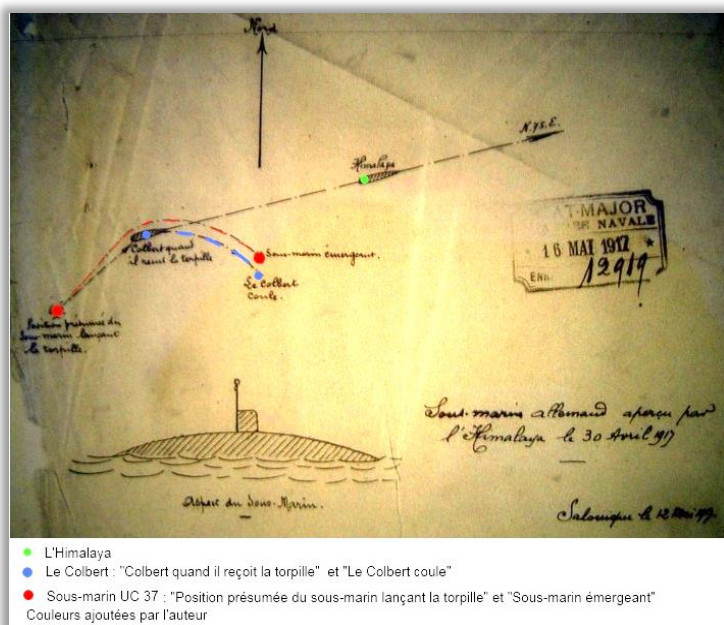 Nord
N.75.E.
Himalaya
Colbert quand
il reçoit la torpille
Sous-marin émergeant.
Le Colbert
coule.
Position présumée du
Sous-marin lançant
la torpille.
ÉTAT-MAJOR
NAVALE
16 MAI 1917 *
ENR. 12919
Sous-marin allemand aperçu par
l'Himalaya le 30 Avril 1917
Aspect du Sous-Marin.
Salonique le 12 Mai
L'Himalaya
Le Colbert : "Colbert quand il reçoit la torpille" et "Le Colbert coule"
Sous-marin UC 37 : "Position présumée du sous-marin lançant la torpille" et "Sous-marin émergeant"
Couleurs ajoutées par l'auteur